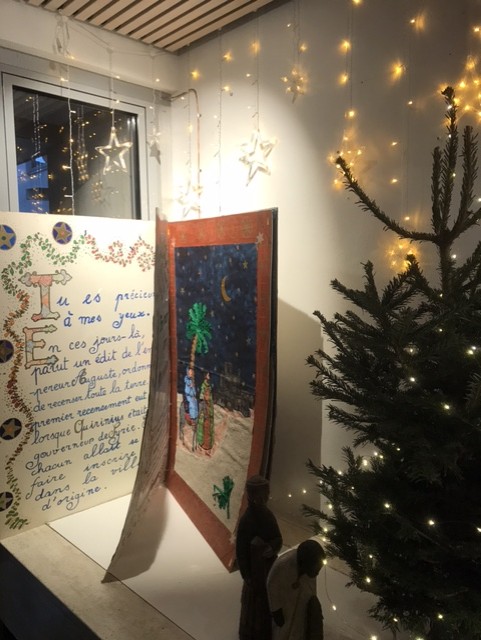 Tu es précieux
à mes yeux.
En ces jours-là,
parut un édit de l'em
pereur Auguste, ordonn
de recenser toute la terre
premier recensement eut
lorsque Quirinius était
gouverneur de Syrie.
chacun allait se
faire inscrire
dans la ville
d'origine.